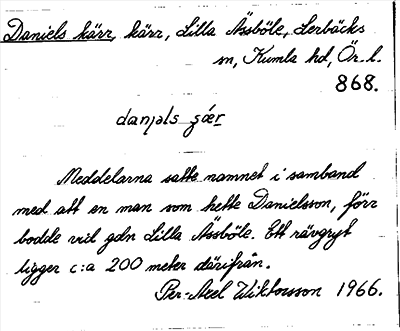 Daniels kärr, kärr, Lilla Ässböle, Lerbäcks
sn, Kumla hd, Ör. l.
868.
Meddelarna satte namnet i samband
med att en man som hette Danielsson, förr
bodde vid gdn Lilla Ässböle. Ett rävgryt
ligger c:a 200 meter därifrån.
Per-Axel Wiktorsson 1966.